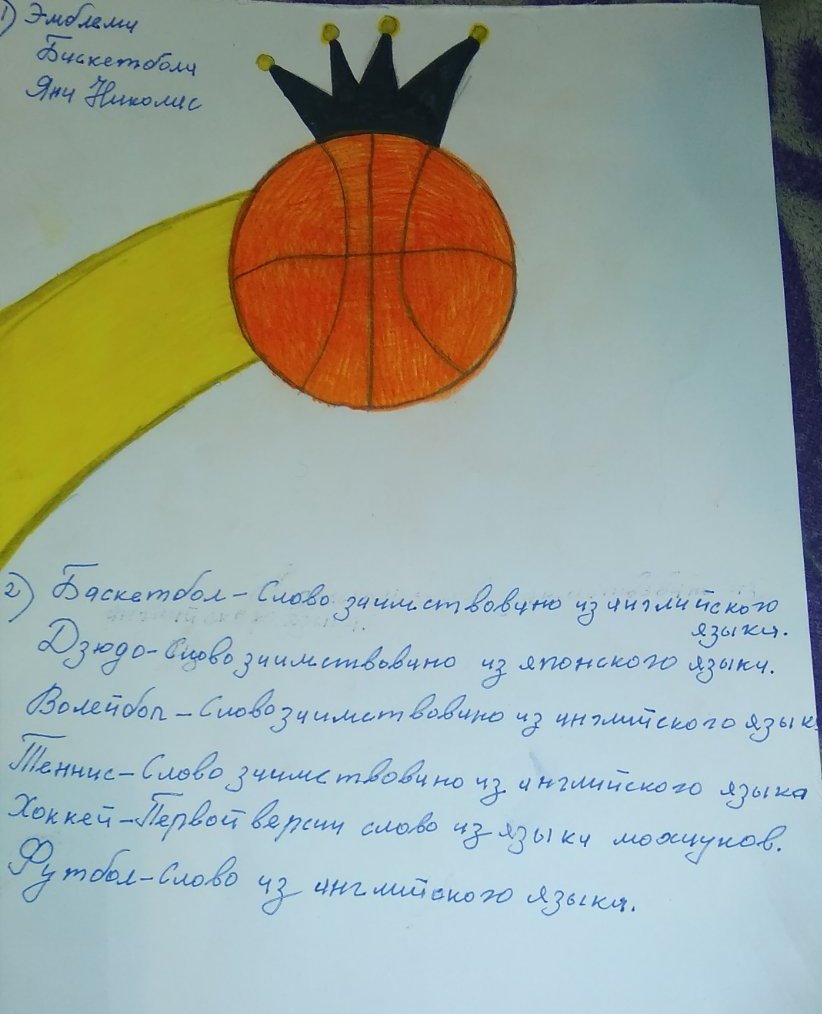 1) Эмблема
Баскетбола
Яна Николас
2) Баскетбол - Слово заимствовано из английского
языка.
Дзюдо - Слово заимствовано из японского языка.
Волейбол - Слово заимствовано из английского язык
Теннис - Слово заимствовано из английского языка
Хоккей - Первой версии слово из языка мохауков.
Футбол - Слово из английского языка.